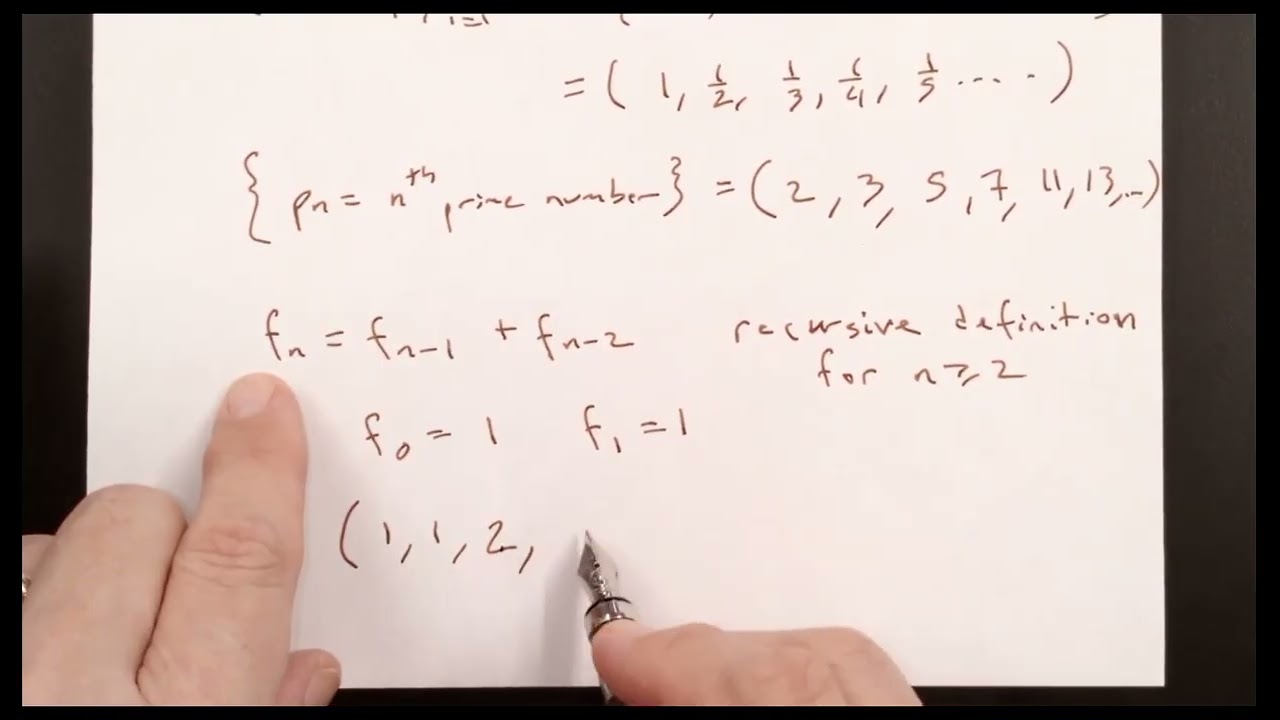 = ( 1, 1/2, 1/3, 1/4, 1/5 .... )
{ pn = nth prime number } = ( 2, 3, 5, 7, 11, 13, ... )
fn = fn-1 + fn-2 recursive definition
for n ≥ 2
f0 = 1 f1 = 1
( 1, 1, 2,